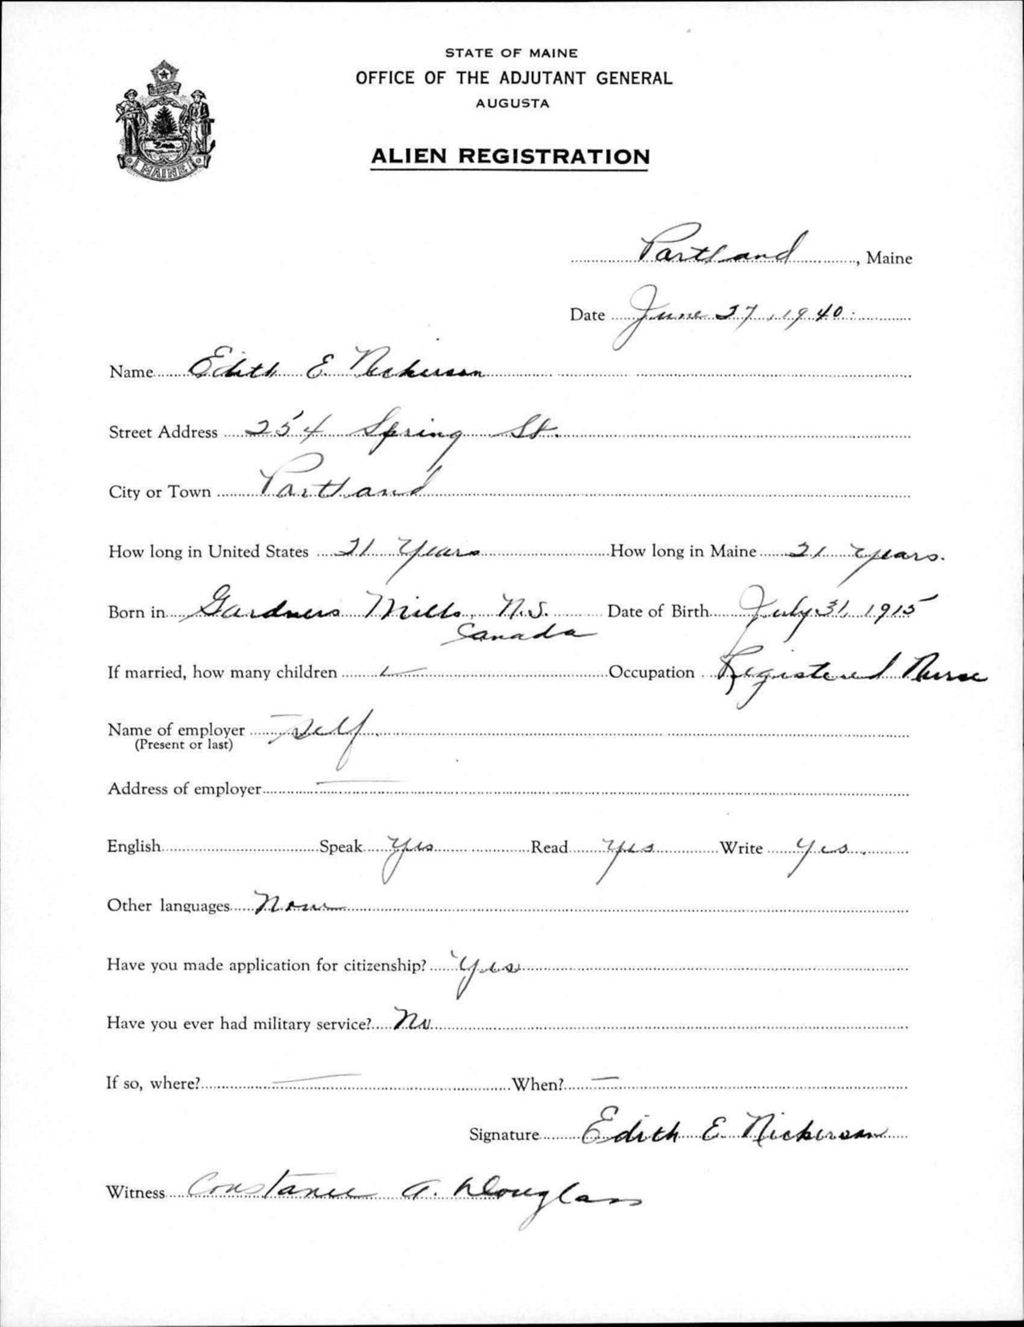 STATE OF MAINE
OFFICE OF THE ADJUTANT GENERAL
AUGUSTA
MAINE
ALIEN REGISTRATION
Portland, Maine
Date June 27, 1940
Name Edith E. Nickerson
Street Address 254 Spring St.
City or Town Portland
How long in United States 21 Years How long in Maine 21 years.
Born in Gardners Mills, N.S. Date of Birth July 31, 1915
Canada
If married, how many children — Occupation Registered Nurse
Name of employer Self
(Present or last)
Address of employer —
English Speak Yes Read Yes Write Yes
Other languages None
Have you made application for citizenship? Yes
Have you ever had military service? No
If so, where? — When? —
Signature Edith E. Nickerson
Witness Constance A. Douglass